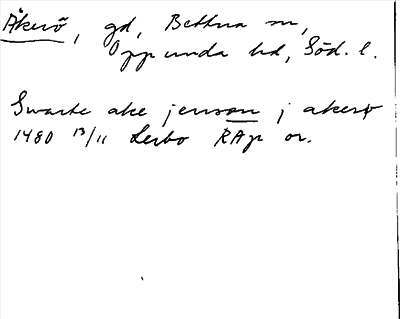 Åkerö, gd, Bettna sn,
Oppunda hd, Söd. l.
Swarte ake jenson j akerø
1480 13/11 Lerbo RAp or.